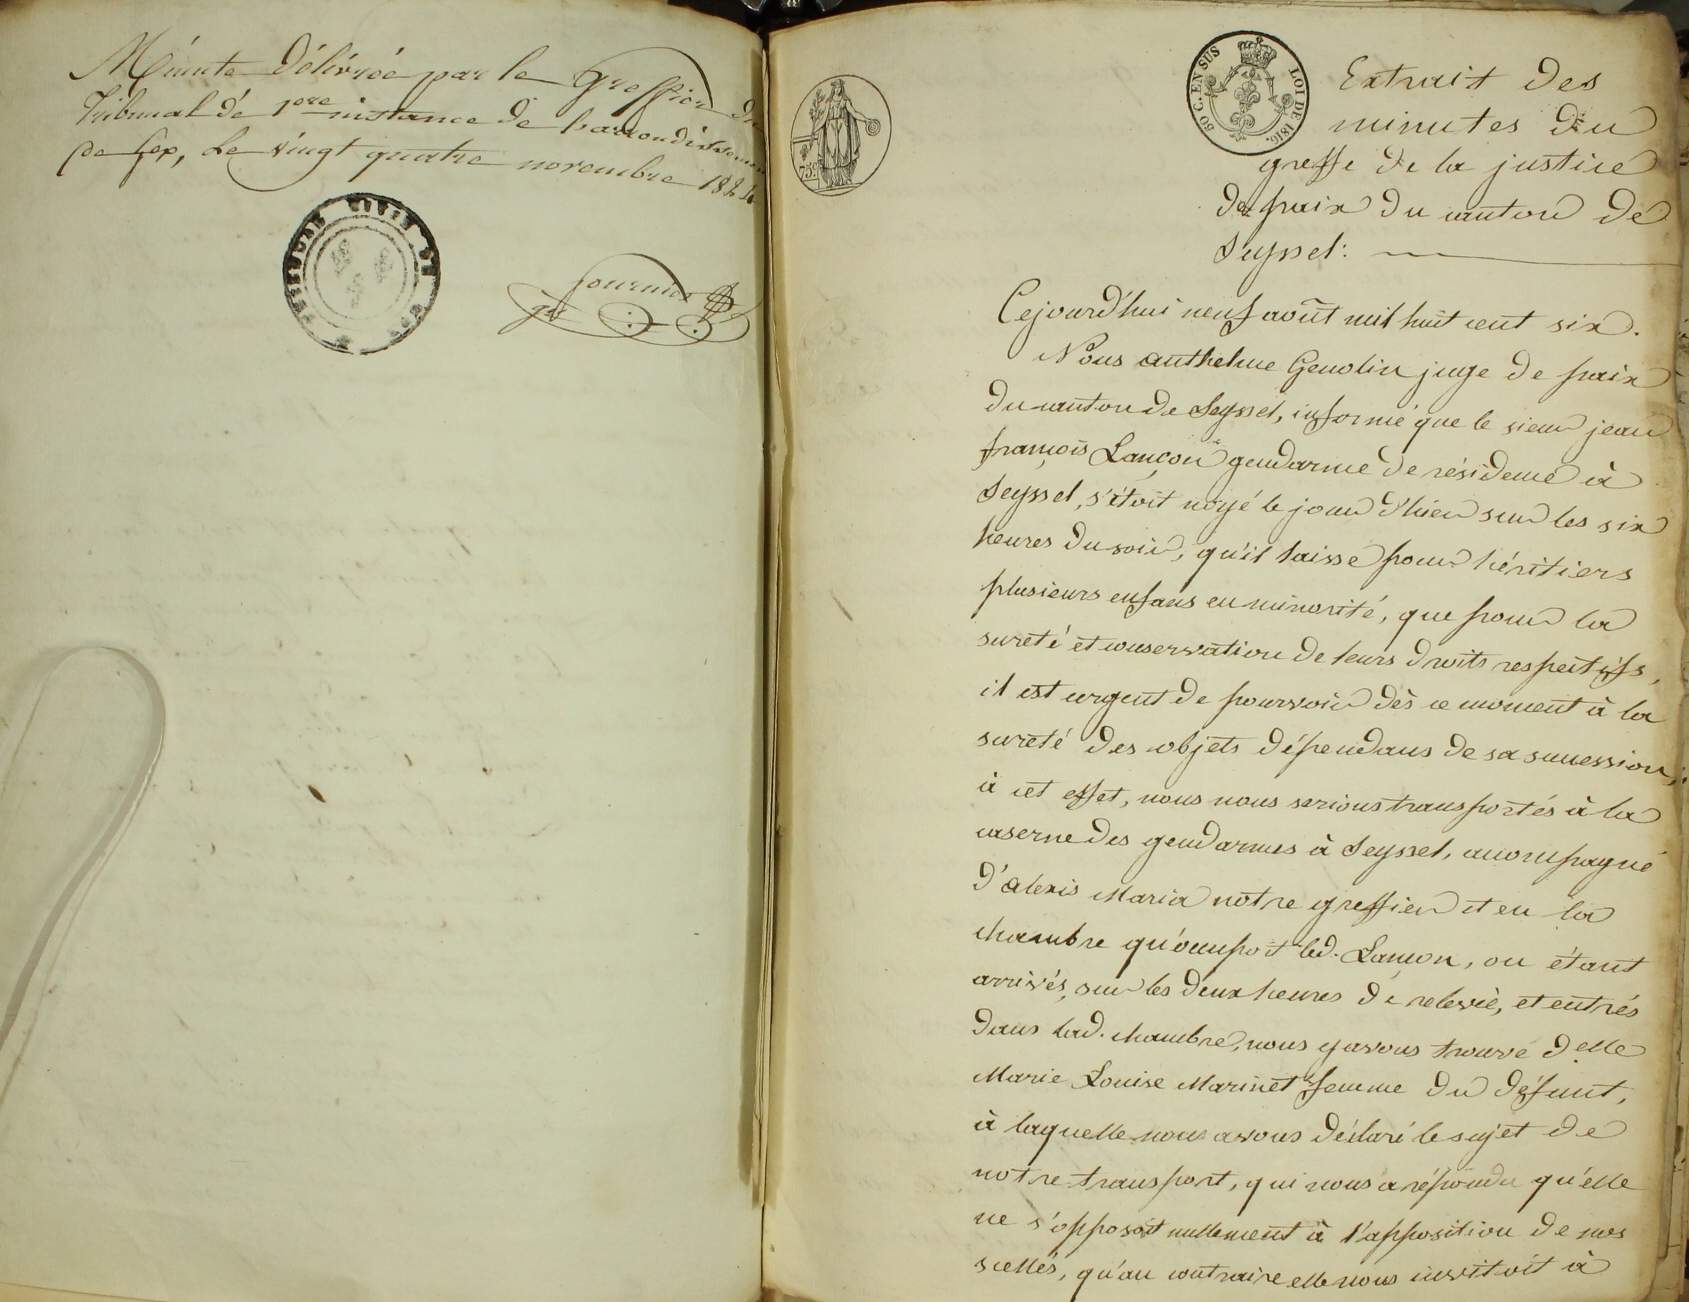 Minute Délivrée par le Greffier du
Tribunal de 1ere instance de l'arrondissement
de Gex, Le vingt quatre novembre 1824
TRIBUNAL CIVIL DE GEX
fournier
gr
75
50 C. EN SUS
LOI DE 1816.
Extrait des
minutes du
greffe de la justice
de paix du canton de
Seyssel:
Cejourd'hui neuf août mil huit cent six.
Nous anthelme Genolin juge de paix
du canton de Seyssel, informé que le sieur jean
françois Lançon gendarme de résidence à
Seyssel, s'étoit noyé le jour d'hier sur les six
heures du soir, qu'il laisse pour héritiers
plusieurs enfans en minorité, que pour la
sureté et conservation de leurs droits respectifs,
il est urgent de pourvoir dès ce moment à la
sureté des objets dépendans de sa succession,
à cet effet, nous nous serions transportés à la
caserne des gendarmes à Seyssel, accompagné
d'alexis Maria notre greffier et en la
chambre qu'occupoit led. Lançon, ou étant
arrivés, sur les deux heures de relevée, et entrés
dans lad. chambre, nous y avons trouvé delle
Marie Louise Marinet femme du défunt,
à laquelle nous avons déclaré le sujet de
notre transport, qui nous a répondu qu'elle
ne s'opposoit nullement à l'apposition de nos
scellés, qu'au contraire elle nous invitoit à